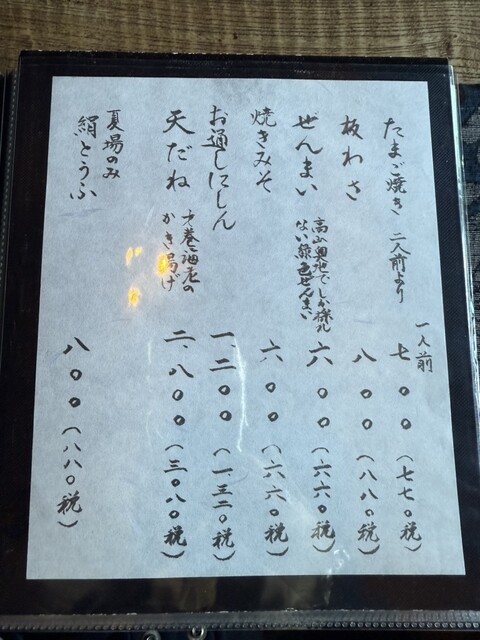 たまご焼き 二人前より 一人前 七〇〇(七七〇税)
板わさ 八〇〇(八八〇税)
ぜんまい 高山奥地でしか採れ
ない銀色ぜんまい 六〇〇(六六〇税)
焼きみそ 六〇〇(六六〇税)
お通しにしん 一、二〇〇(一三二〇税)
天だね 才巻海老の
かき揚げ 二、八〇〇(三〇八〇税)
夏場のみ
絹とうふ 八〇〇(八八〇税)